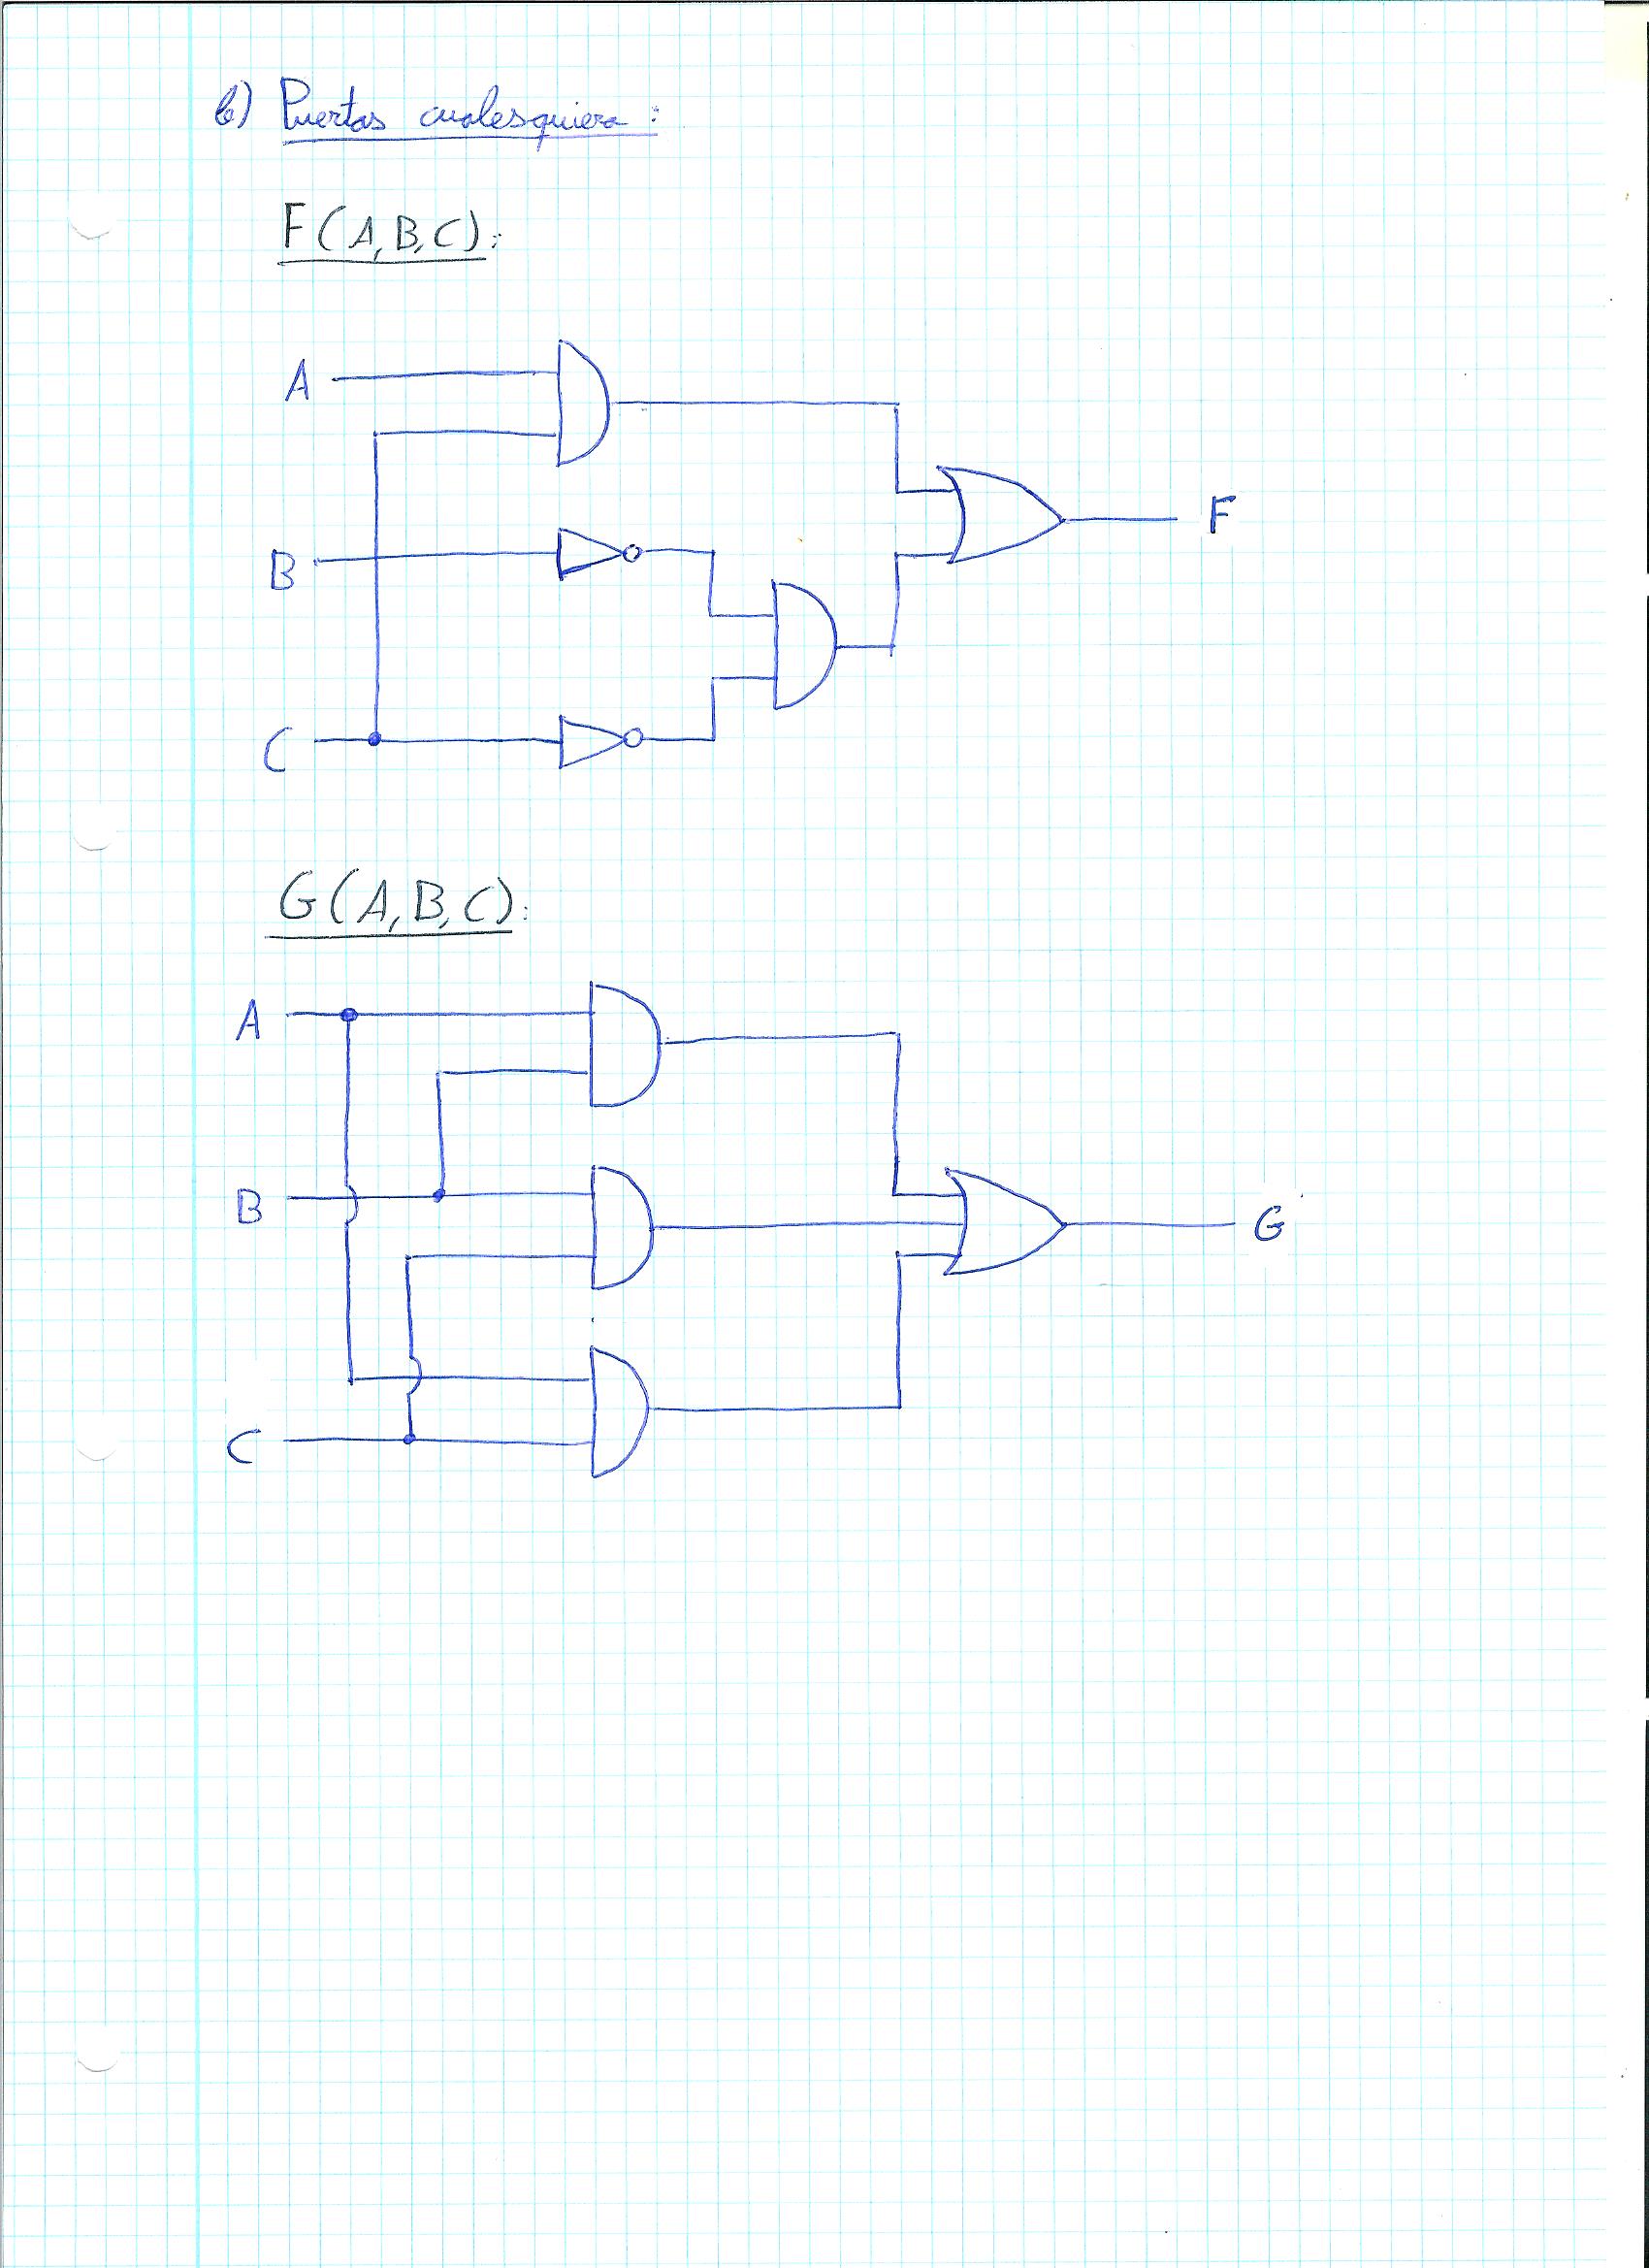 b) Puertas cualesquiera:
F(A,B,C):
A
B
C
F
G(A,B,C):
A
B
C
G